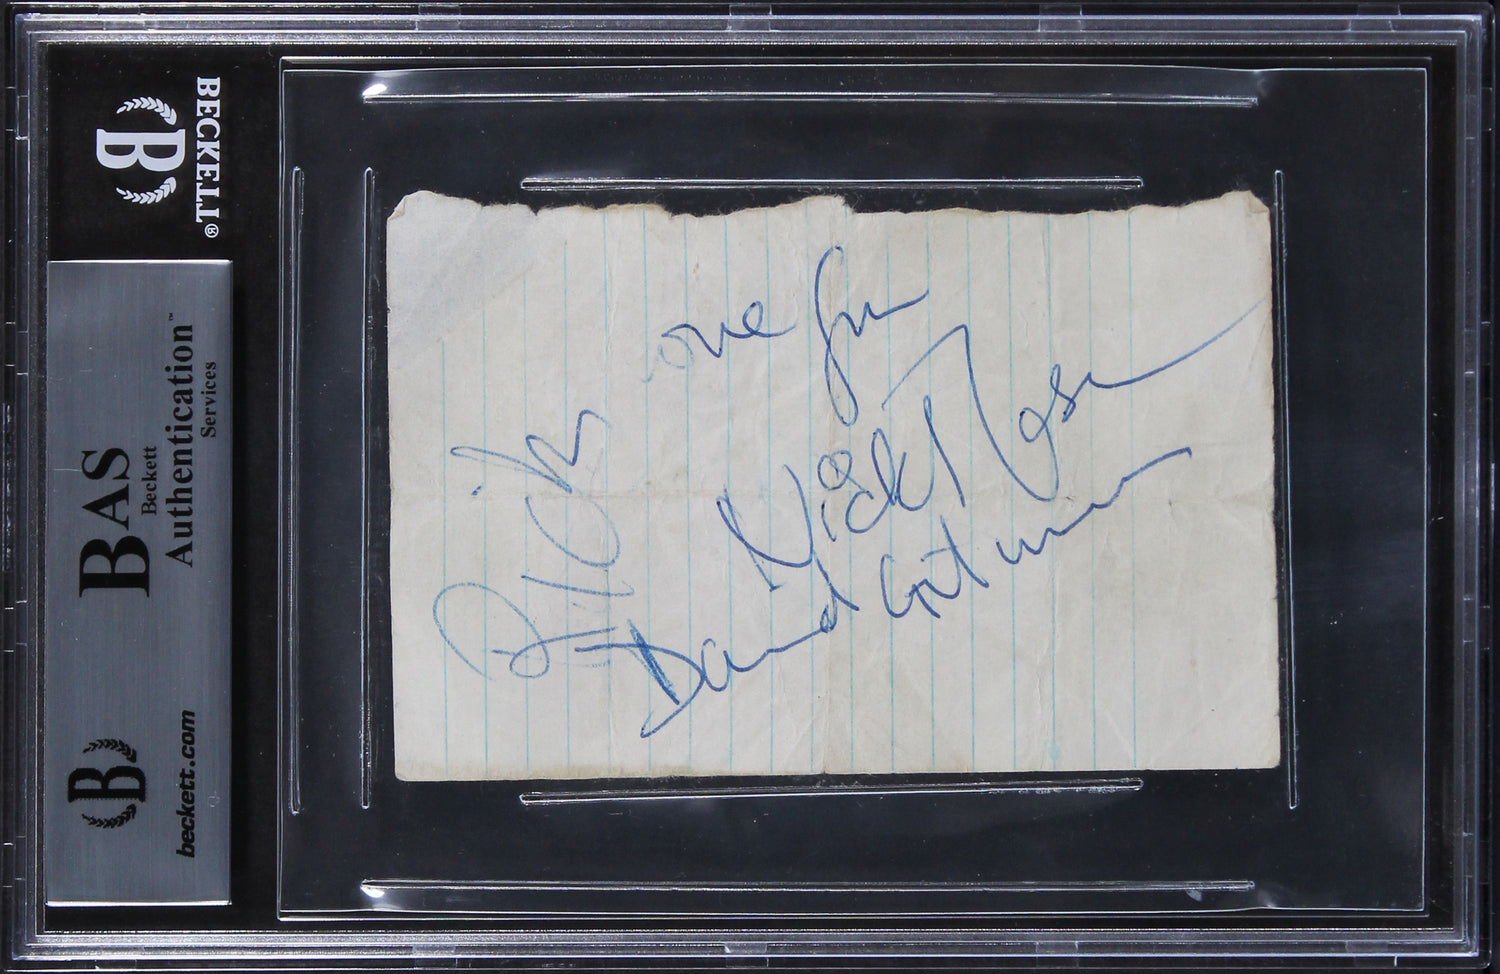 BECKETT®
B
BAS
Beckett
Authentication™
Services
B
beckett.com
Rick
one
Nick
David Gilmour